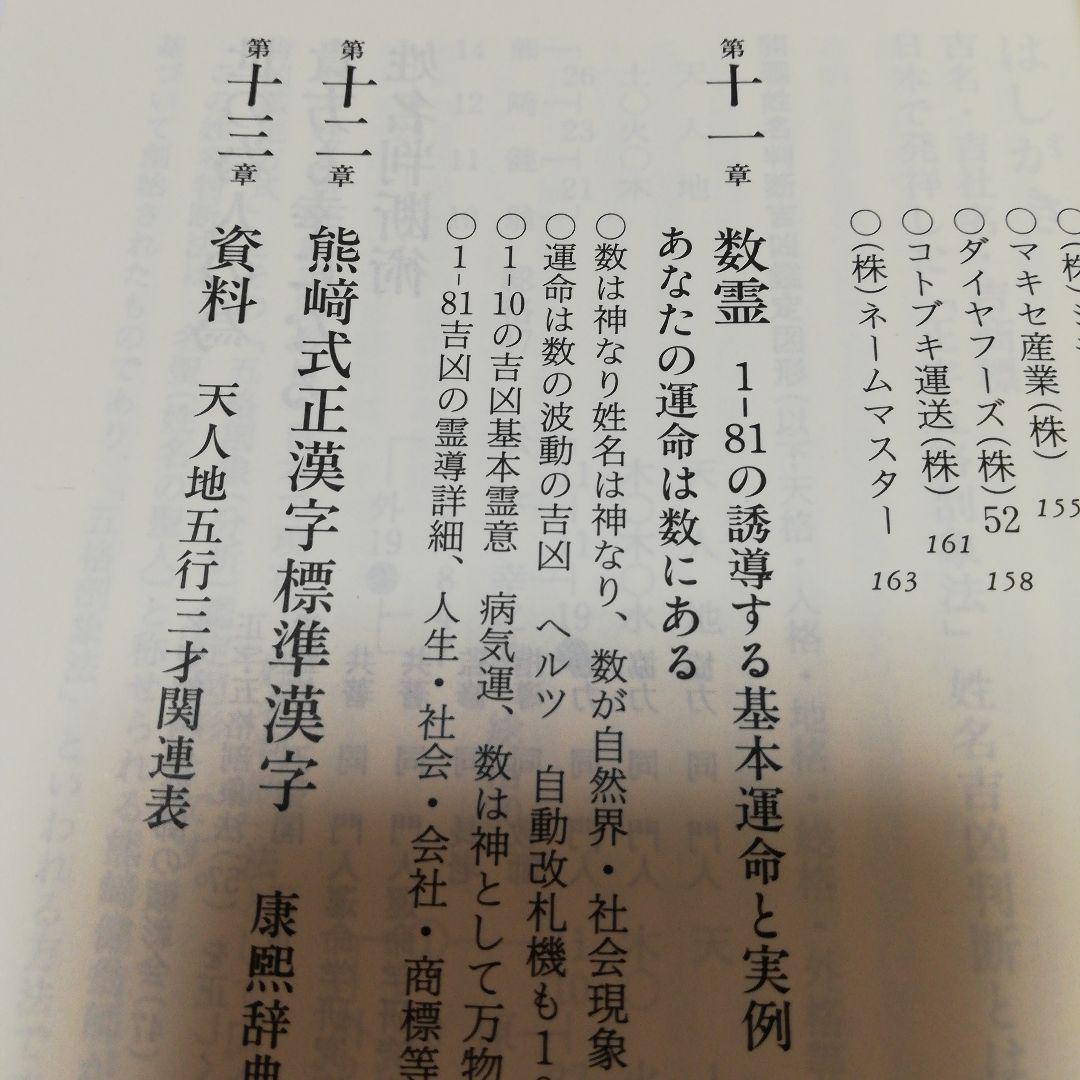 ○マキセ産業(株) 155
○ダイヤフーズ(株) 158
○コトブキ運送(株) 161
○(株)ネームマスター 163
52
第十一章 数霊 1-81の誘導する基本運命と実例
あなたの運命は数にある
○数は神なり姓名は神なり、数が自然界・社会現象
○運命は数の波動の吉凶 ヘルツ 自動改札機も1
○1-10の吉凶基本霊意 病気運、数は神として万物
○1-81吉凶の霊導詳細、人生・社会・会社・商標等
第十二章 熊﨑式正漢字標準漢字 康熙辞典
第十三章 資料 天人地五行三才関連表